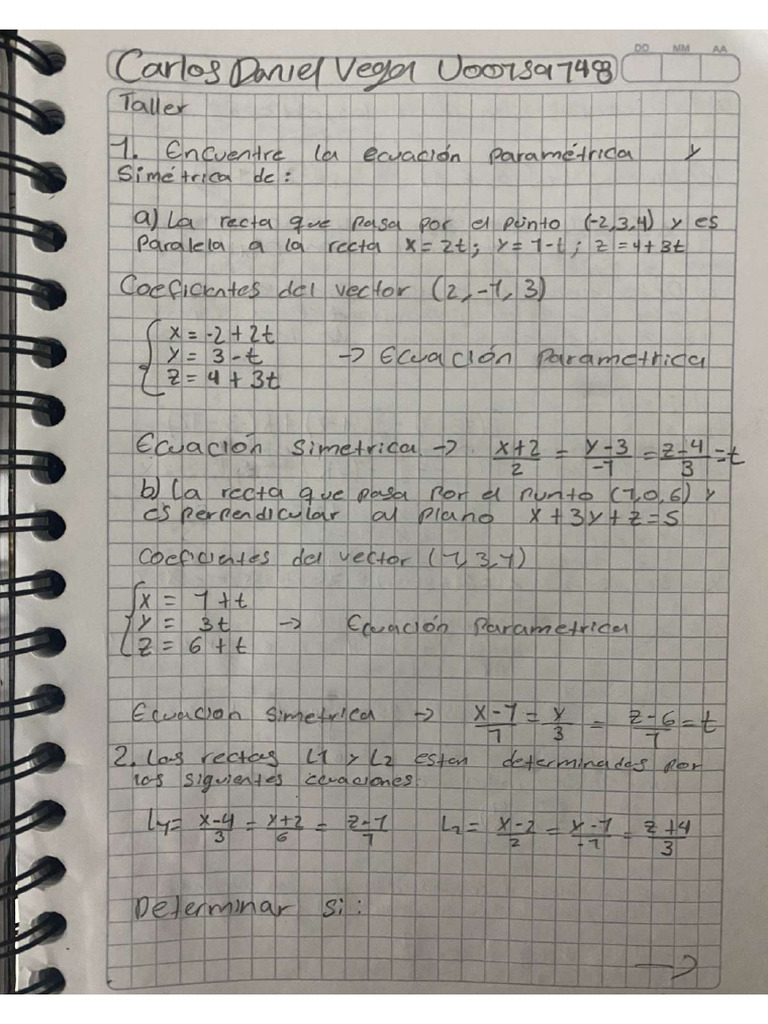 DD MM AA
Carlos Daniel Vega U00159748
Taller
1. Encuentre la ecuación paramétrica y
Simétrica de:
a) La recta que pasa por el punto (-2,3,4) y es
Paralela a la recta x=2t; y=1-t; z=4+3t
Coeficientes del vector (2,-1,3)
x = -2+2t
y = 3-t -> Ecuación Parametrica
z = 4+3t
Ecuación simetrica -> (x+2)/2 = (y-3)/-1 = (z-4)/3 = t
b) La recta que pasa por el punto (1,0,6) y
es perpendicular al plano x+3y+z=5
Coeficientes del vector (1,3,1)
x = 1+t
y = 3t -> Ecuación Parametrica
z = 6+t
Ecuacion simetrica -> (x-1)/1 = y/3 = (z-6)/1 = t
2. Las rectas L1 y L2 estan determinadas por
las siguientes ecuaciones:
L1= (x-4)/3 = (y+2)/6 = (z-1)/1 L2= (x-2)/2 = (y-1)/-1 = (z+4)/3
Determinar si:
->